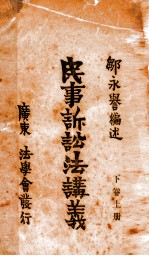 鄒永譽編述
下卷上册
民事訴訟法講義
廣東 法學會發行